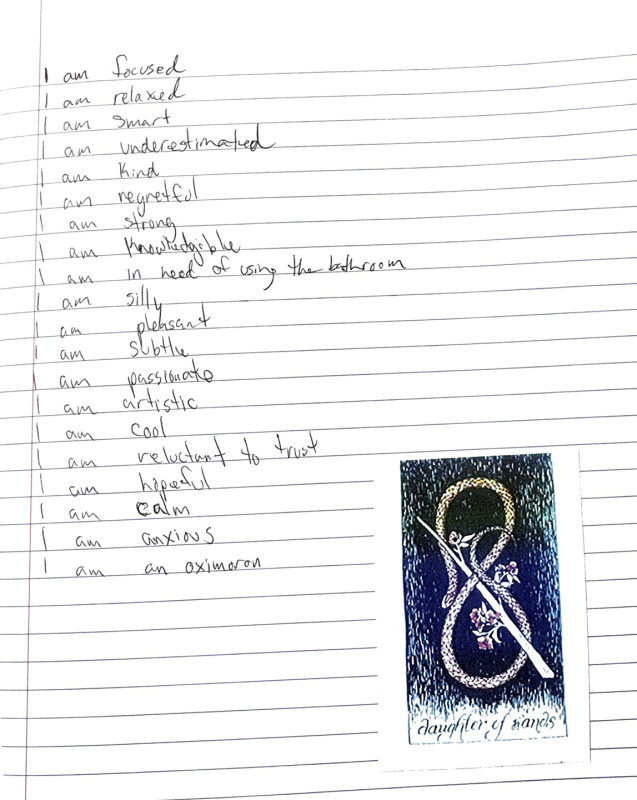 I am focused
I am relaxed
I am smart
I am underestimated
I am kind
I am regretful
I am strong
I am knowledgible
I am in need of using the bathroom
I am silly
I am pleasant
I am subtle
I am passionate
I am artistic
I am cool
I am reluctant to trust
I am hopeful
I am calm
I am anxious
I am an oximoron
daughter of wands